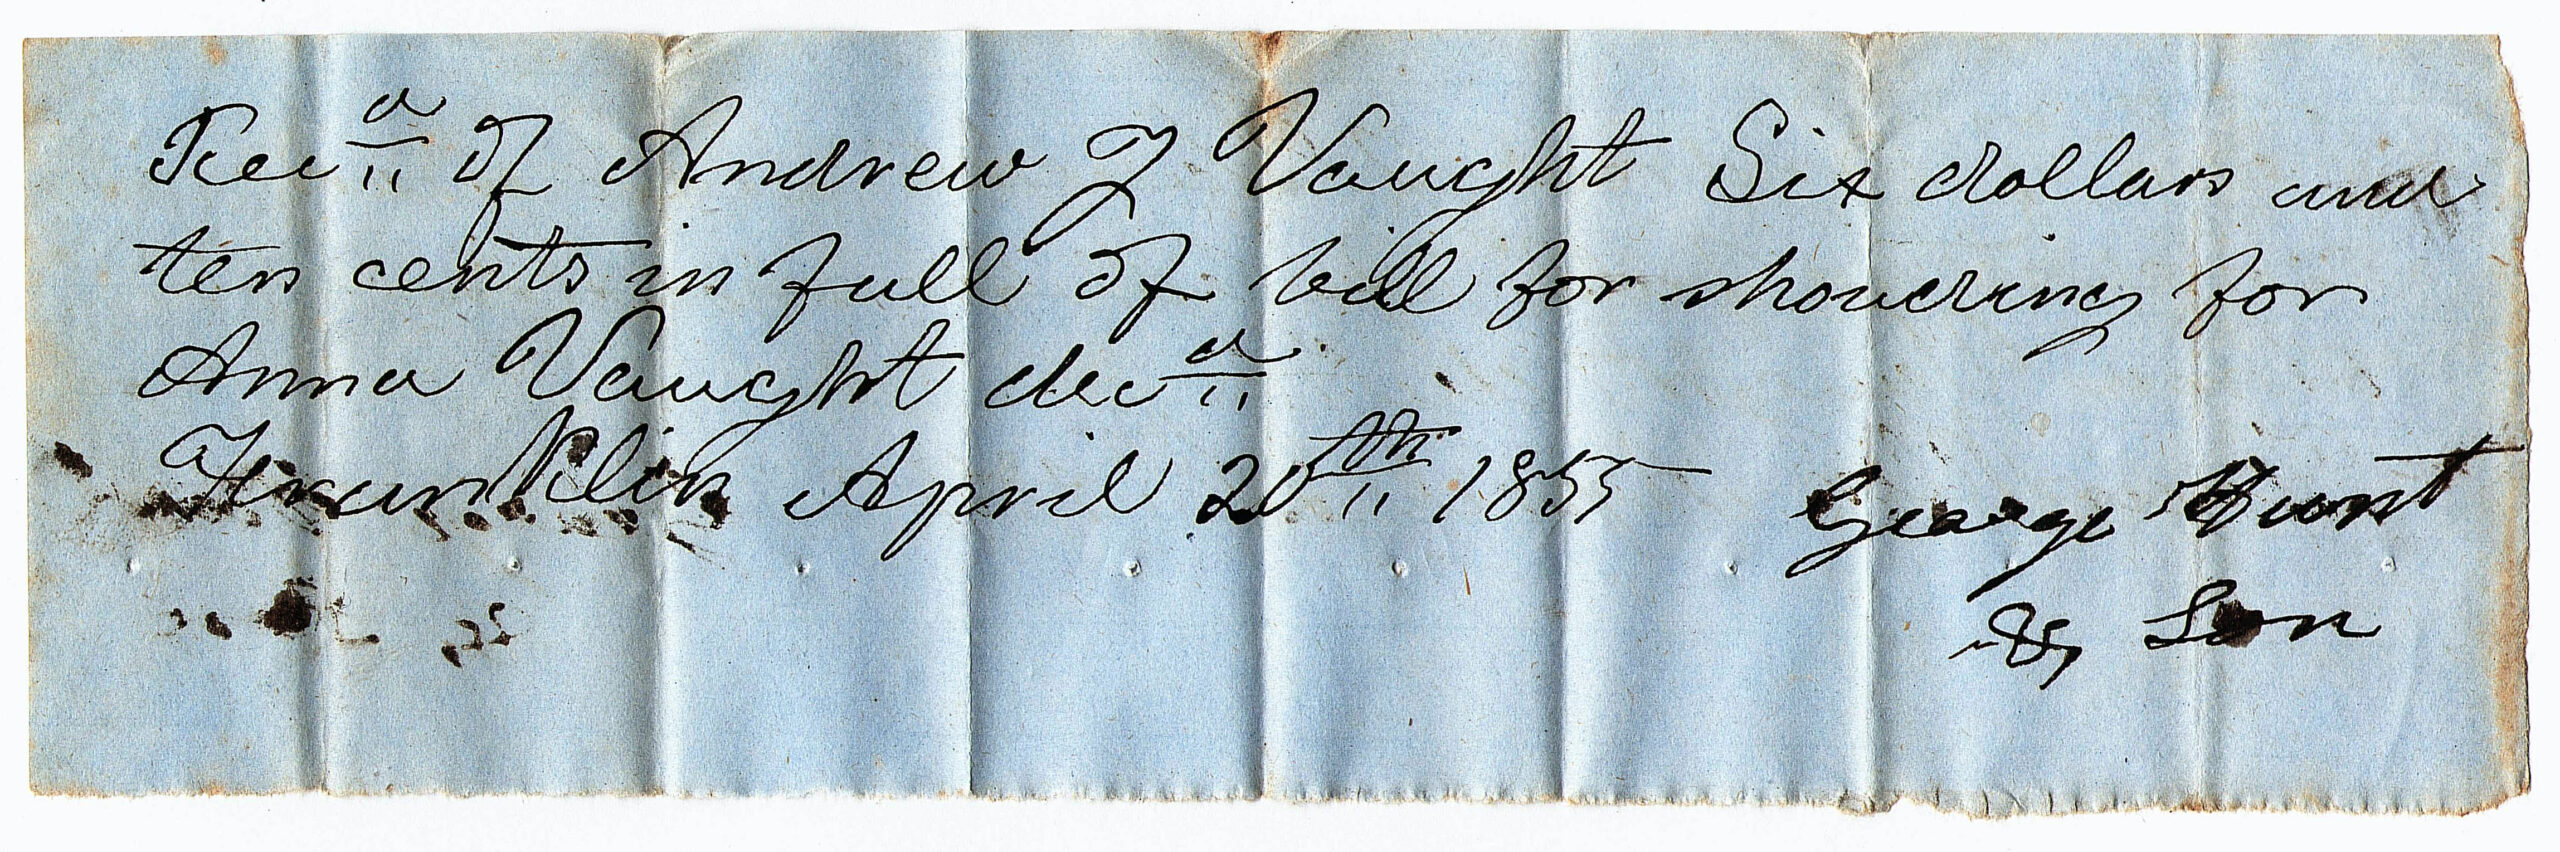 Recd of Andrew J Vaught Six dollars and
ten cents in full of bill for shrouding for
Anna Vaught decd
Franklin April 20th 1855 George Hunt
& Son